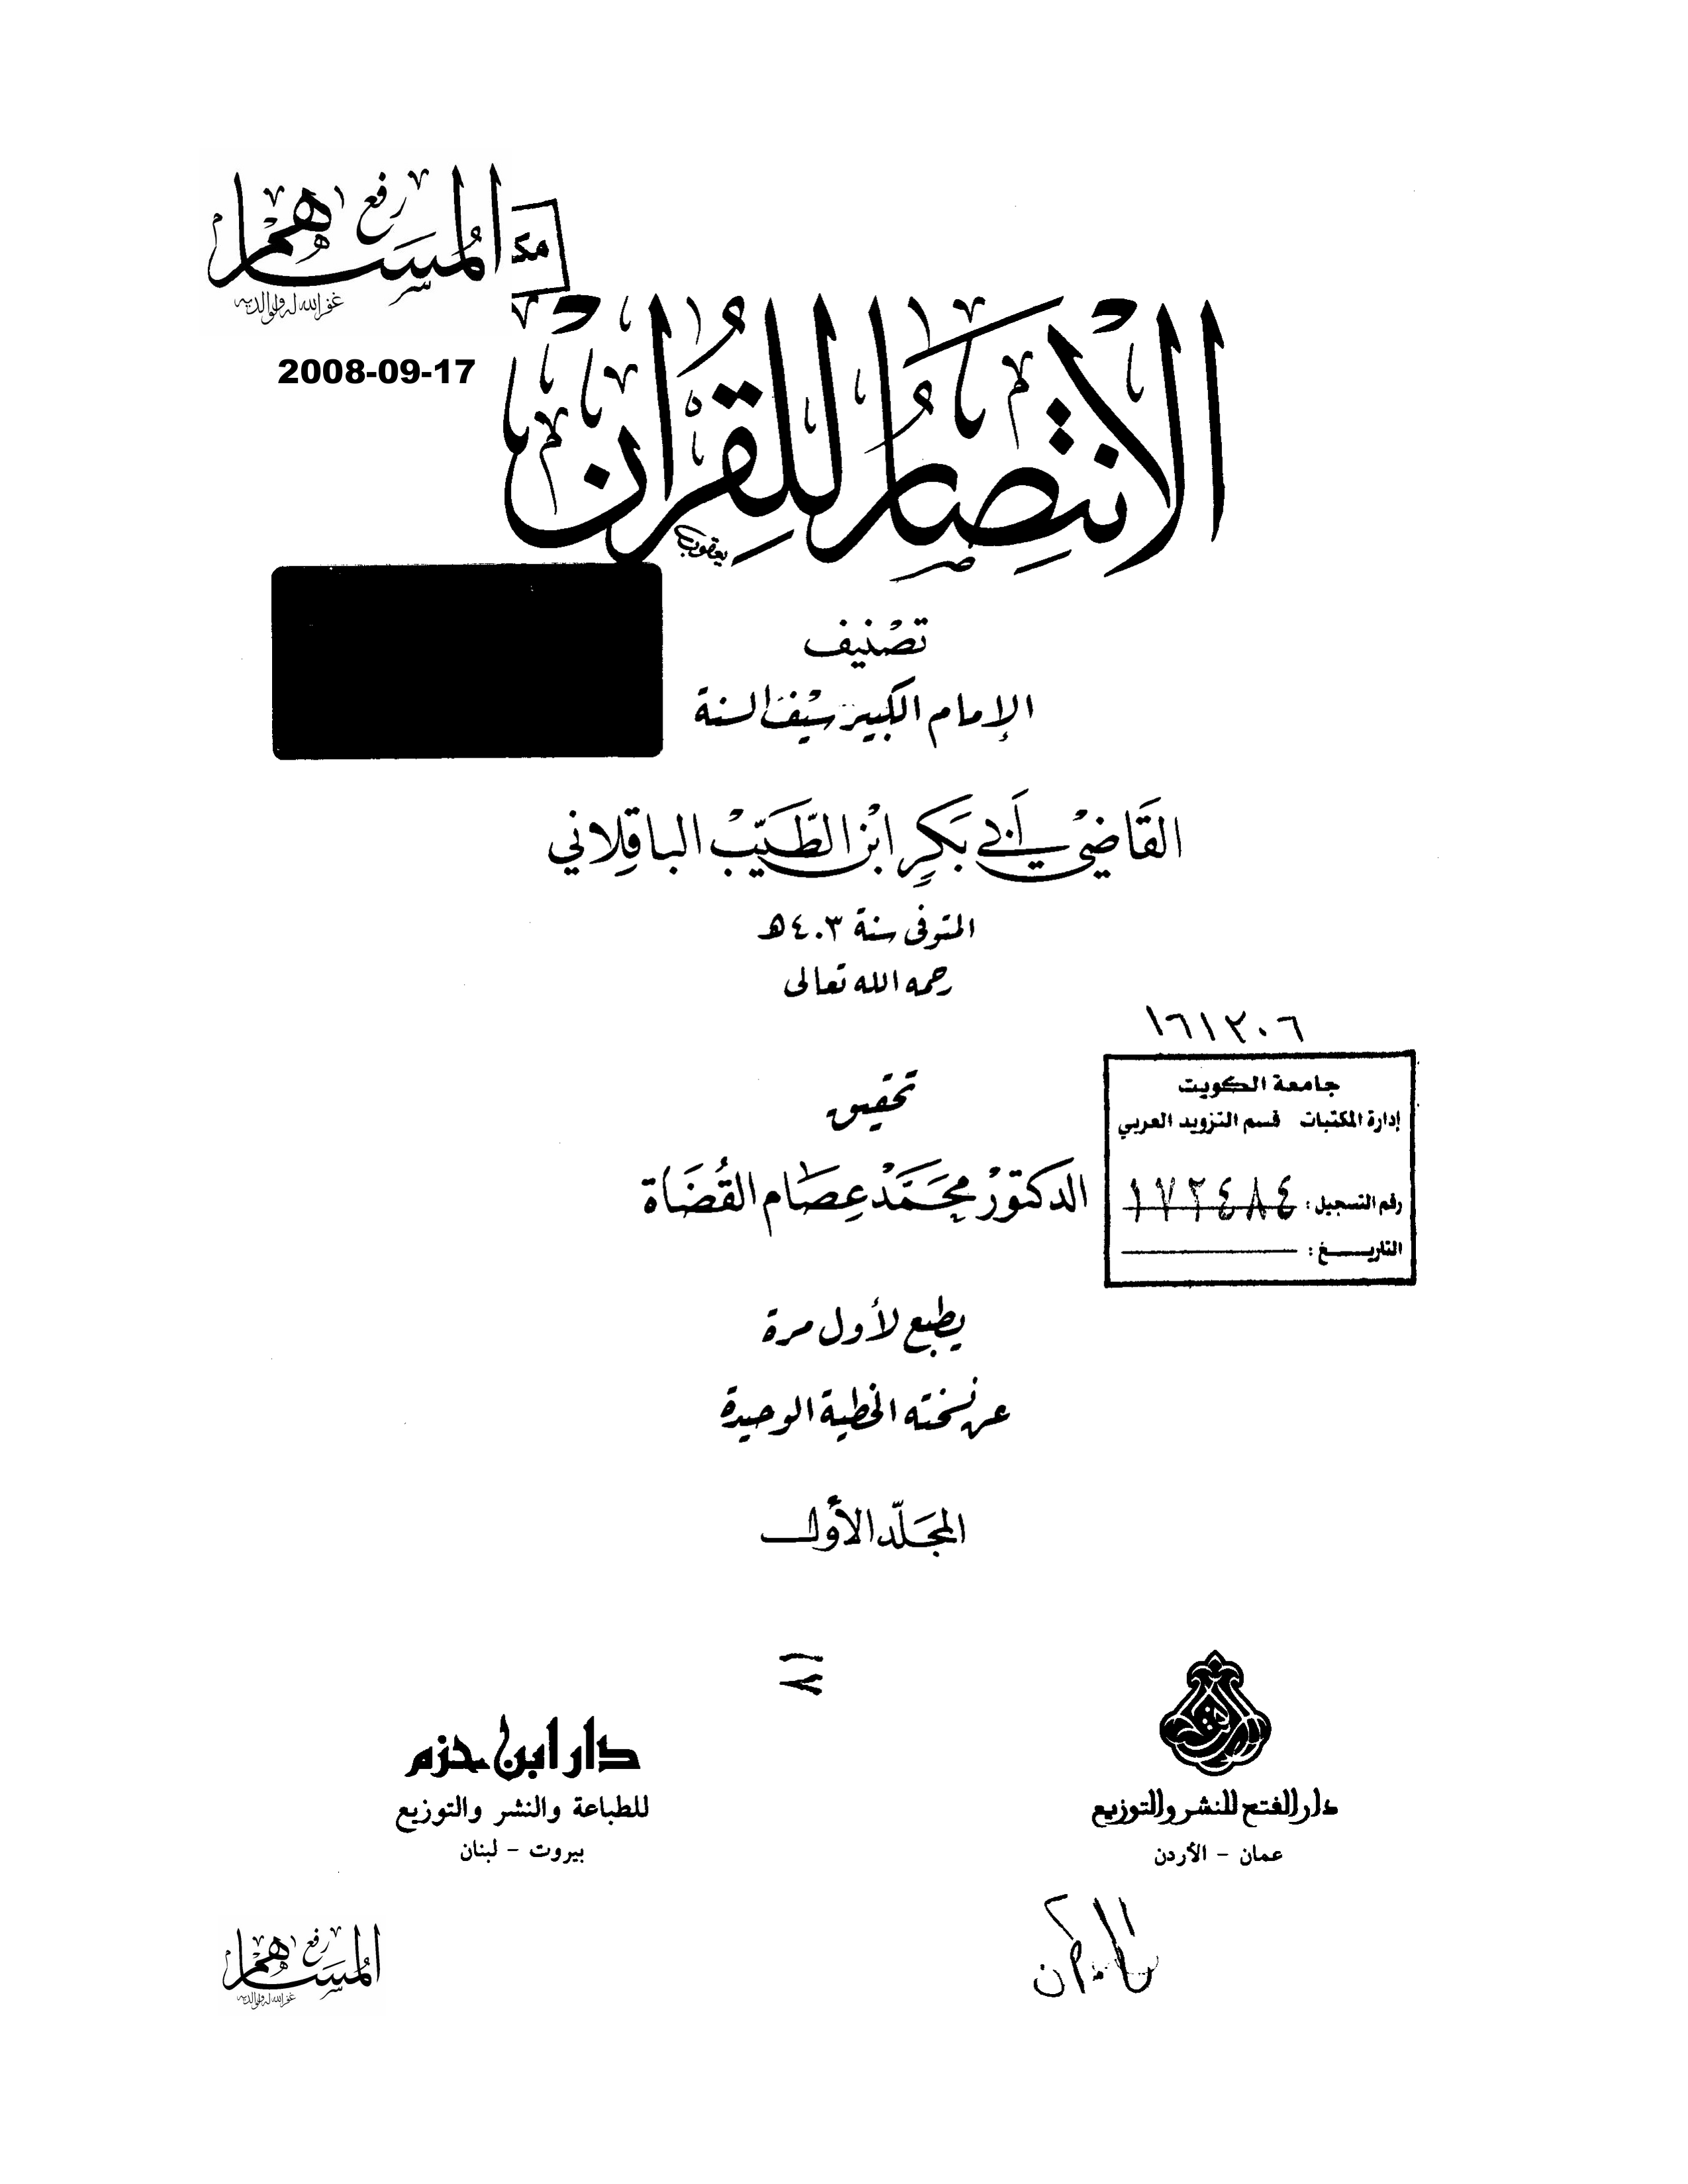 رفع
المساهم
غفر الله له ولوالديه
2008-09-17
الانتصار للقرآن
يعقوب
تصنيف
الإمام الكبير سيف السنة
القاضي أبي بكر ابن الطيب الباقلاني
المتوفى سنة ٤٠٣هـ
رحمه الله تعالى
١٦١٢٠٦
جامعة الكويت
إدارة المكتبات قسم التزويد العربي
رقم التسجيل : ١٧٢٤٨٤
التاريـــخ :
تحقيق
الدكتور محمد عصام القضاة
يطبع لأول مرة
عن نسخته الخطية الوحيدة
المجلد الأول
دار الفتح للنشر والتوزيع
عمان - الأردن
دار ابن حزم
للطباعة والنشر والتوزيع
بيروت - لبنان
رفع
المساهم
غفر الله له ولوالديه